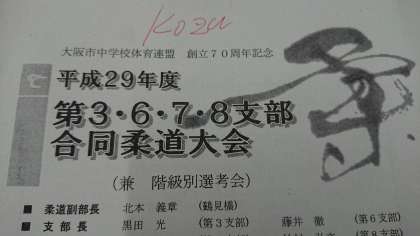 Kozu
大阪市中学校体育連盟 創立70周年記念
平成29年度
第3・6・7・8支部
合同柔道大会
(兼 階級別選考会)
■ 柔道副部長 北本 義章 (鶴見橋)
■ 支部長 黒田 光 (第3支部) 藤井 徹 (第6支部)
(第8支部)